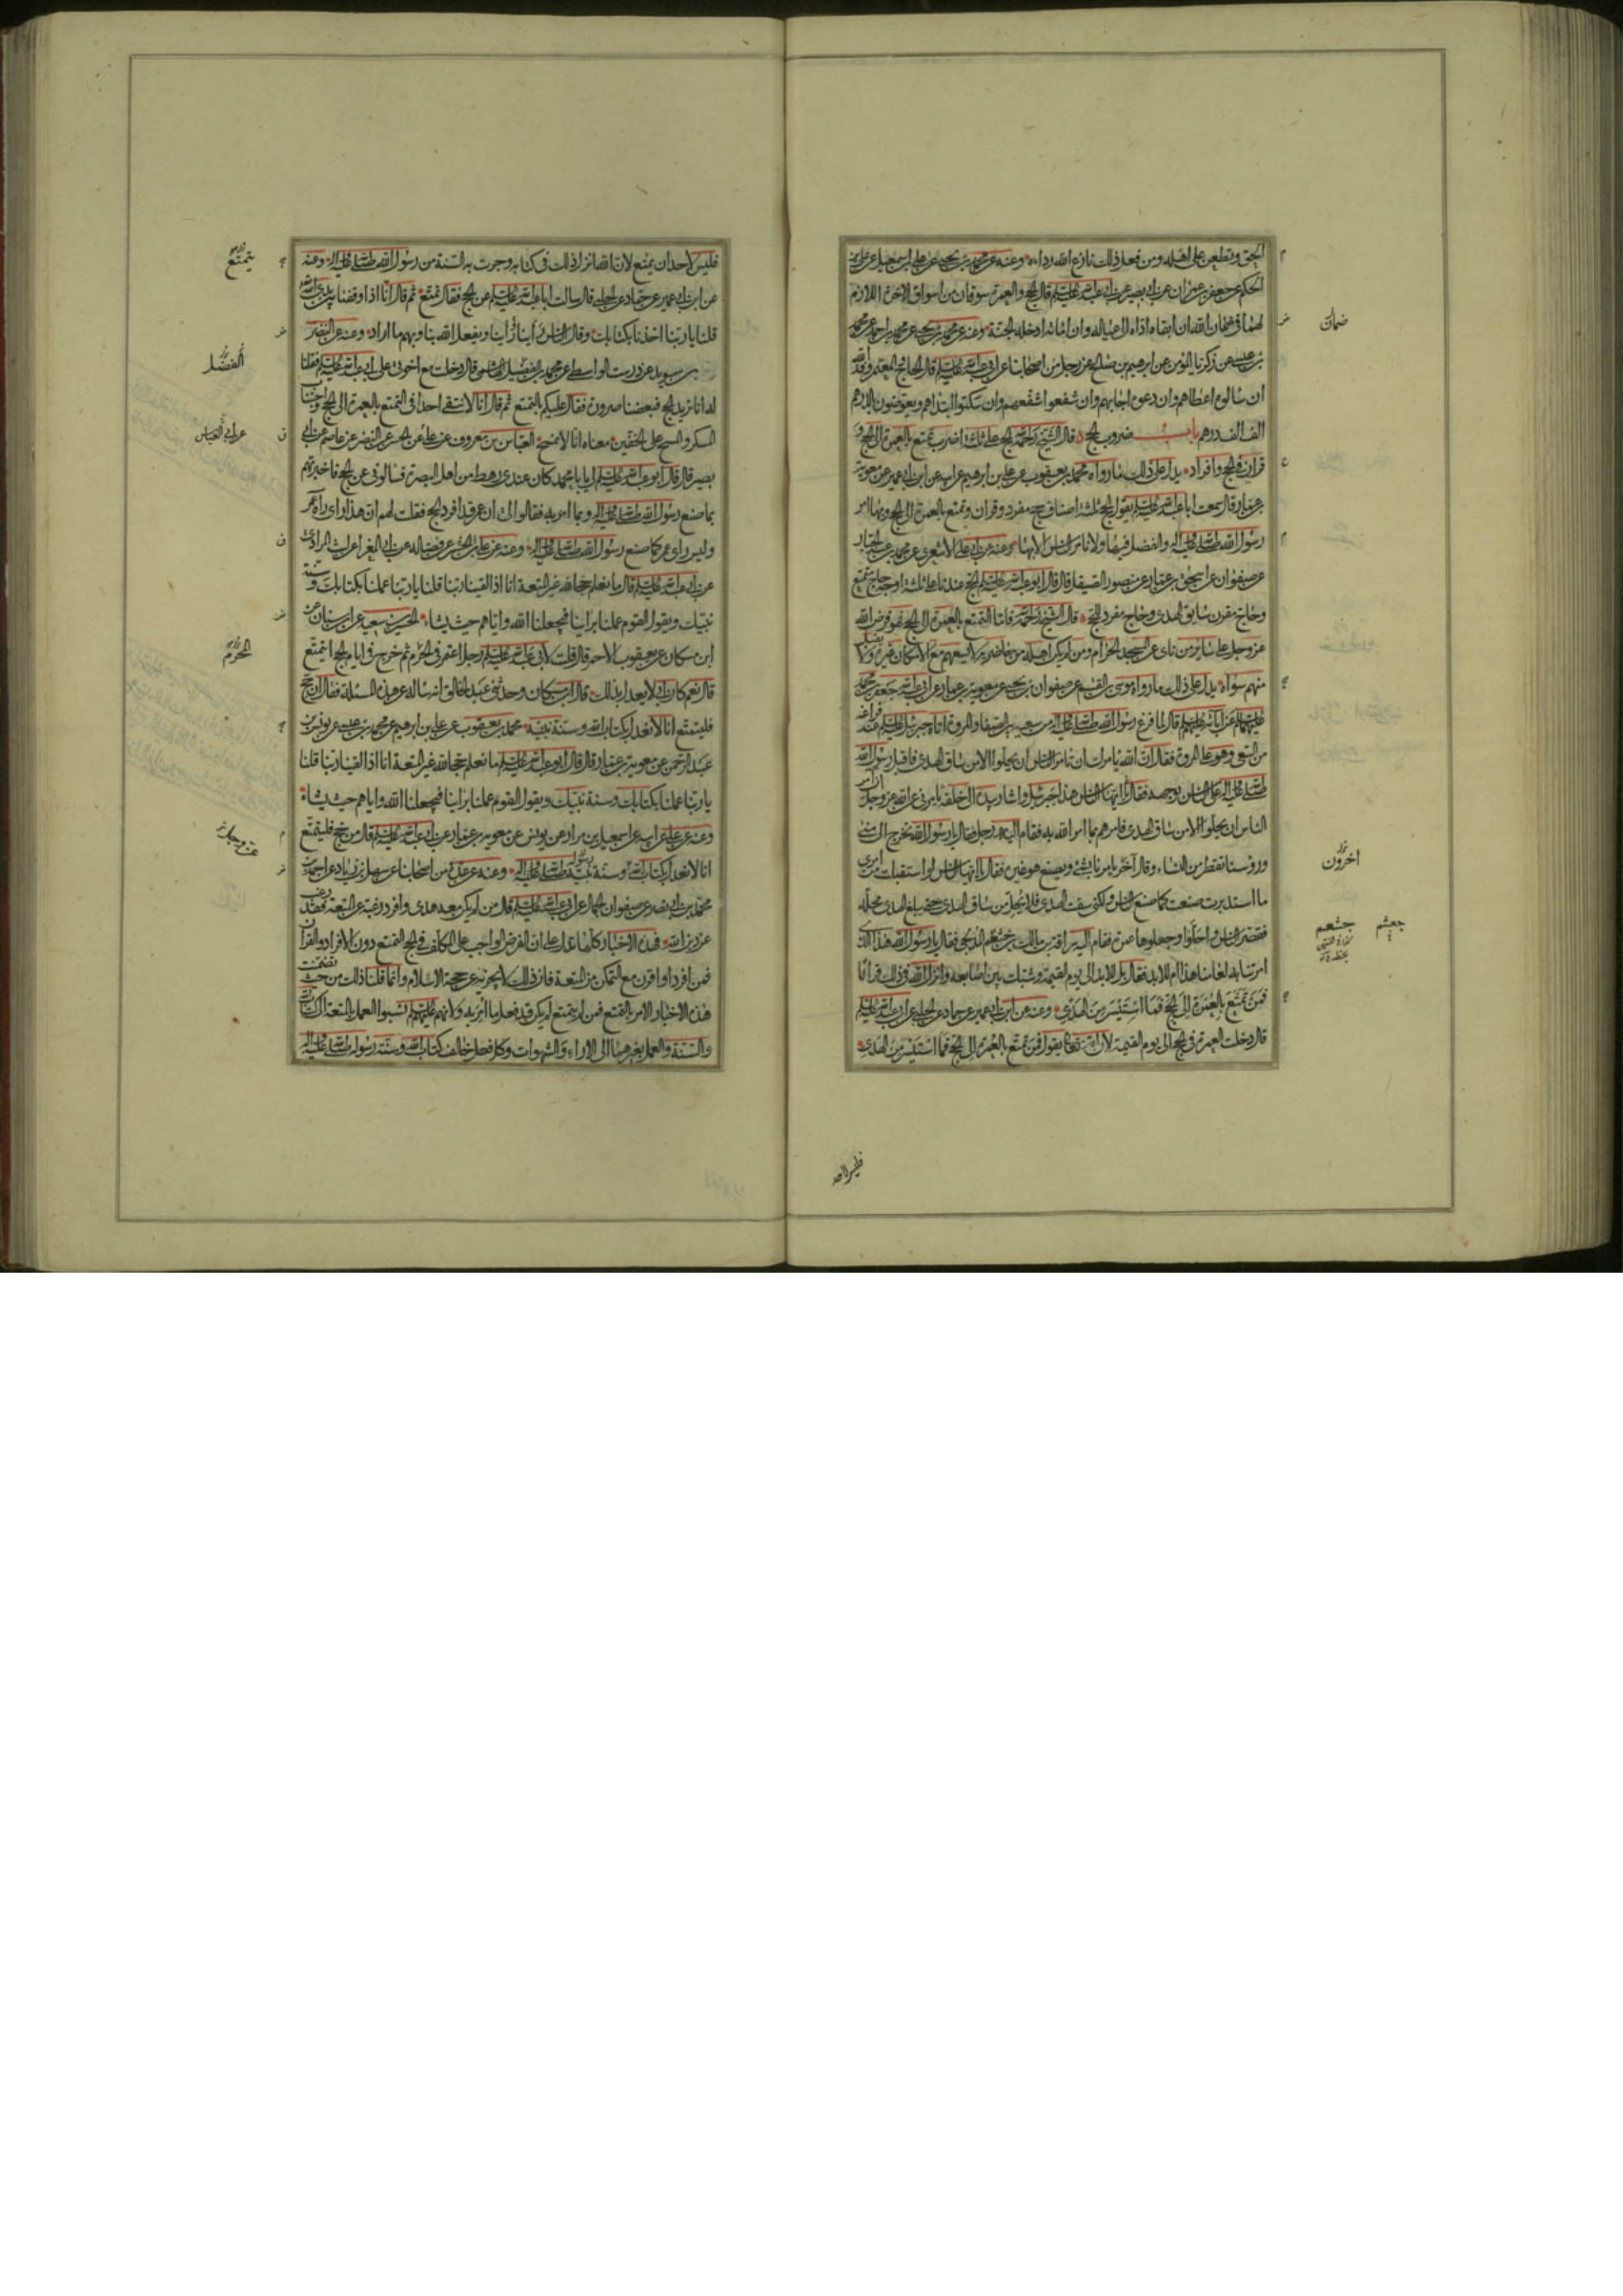 الحق وتطعن على اهله ومن فعل ذلك نازع الله رداءه وعنه عن محمد بن يحيى عن محمد بن اسمعيل عن علي بن
الحكم عن جعفر بن عمران عن ابى بصير عن ابى عبد الله عليه السلم قال الحج والعمرة سوقان من اسواق الاخرة اللازم
لهما فى ضمان الله ان ابقاه اداه الى عياله وان اماته ادخله الجنة وعنه عن محمد بن يحيى عن محمد بن احمد عن محمد
بن عيسى عن زكريا المؤمن عن ابرهيم بن صالح عن رجل من اصحابنا عن ابى عبد الله عليه السلم قال الحاج والمعتمر وفد الله
ان سالوه اعطاهم وان دعوه اجابهم وان شفعوا شفعهم وان سكتوا ابتداهم ويعوضون بالدرهم
الف الف درهم باب ضروب الحج قال الشيخ رحمه الله الحج على ثلثة اضرب تمتع بالعمرة الى الحج و
قران فى الحج وافراد يدل على ذلك ما رواه محمد بن يعقوب عن علي بن ابرهيم عن ابيه عن ابن ابى عمير عن معوية
بن عمار قال سمعت ابا عبد الله عليه السلم يقول الحج ثلثة اصناف حج مفرد وقران وتمتع بالعمرة الى الحج وبها امر
رسول الله صلى الله عليه واله والفضل فيها ولا نامر الناس الا بها وعنه عن ابى علي الاشعرى عن محمد بن عبد الجبار
عن صفوان عن اسحق بن عمار عن منصور الصيقل قال قال ابو عبد الله عليه السلم الحج عندنا على ثلثة اوجه حاج متمتع
وحاج مقرن سايق الهدى وحاج مفرد للحج قال الشيخ رحمه الله فاما التمتع بالعمرة الى الحج فهو فرض الله
عز وجل على سائر من ناى عن المسجد الحرام ومن لم يكن اهله من حاضريه لا يسعهم مع الامكان غيره ولا يقبل
منهم سواه يدل على ذلك ما رواه موسى بن القسم عن صفوان بن يحيى عن معوية بن عمار عن ابى عبد الله جعفر بن محمد
عليهما السلم عن ابائه عليهم السلم قال لما فرغ رسول الله صلى الله عليه واله من سعيه بين الصفا والمروة اتاه جبرئيل عليه السلم عند فراغه
من السعى وهو على المروة فقال ان الله يامرك ان تامر الناس ان يحلوا الا من ساق الهدى فاقبل رسول الله
صلى الله عليه واله على الناس بوجهه فقال يا ايها الناس هذا جبرئيل واشار بيده الى خلفه يامرنى عن الله عز وجل ان امر
الناس ان يحلوا الا من ساق الهدى فامرهم بما امر الله به فقام اليه رجل فقال يا رسول الله نخرج الى منى
ورؤسنا تقطر من النساء وقال اخر يامرنا بشئ ويصنع هو غيره فقال يا ايها الناس لو استقبلت من امرى
ما استدبرت صنعت كما صنع الناس ولكنى سقت الهدى فلا يحل من ساق الهدى حتى يبلغ الهدى محله
فقصر الناس واحلوا وجعلوها عمرة فقام اليه سراقة بن مالك بن جشعم المدلجى فقال يا رسول الله هذا الذى
امرتنا به لعامنا هذا ام للابد فقال بل للابد الى يوم القيمة وشبك بين اصابعه وانزل الله فى ذلك قرانا
فمن تمتع بالعمرة الى الحج فما استيسر من الهدى وعنه عن ابن ابى عمير عن حماد عن الحلبى عن ابى عبد الله عليه السلم
قال دخلت العمرة فى الحج الى يوم القيمة لان الله تعالى يقول فمن تمتع بالعمرة الى الحج فما استيسر من الهدى
ضمان
اخرون
جعثم
جشعم
فليس لاحد
فليس لاحد ان يتمتع لان الله انزل ذلك فى كتابه وجرت به السنة من رسول الله صلى الله عليه واله وعنه
عن ابن ابى عمير عن حماد عن الحلبى قال سالت ابا عبد الله عليه السلم عن الحج فقال تمتع ثم قال انا اذا وقفنا بين يدى الله
قلنا يا ربنا اخذنا بكتابك وقال الناس راينا راينا ويفعل الله بنا وبهم ما اراد وعنه عن النضر
بن سويد عن درست الواسطى عن محمد بن الفضيل الهاشمى قال دخلت مع اخوتى على ابى عبد الله عليه السلم فقلنا
له انا نريد الحج فبعضنا صرورة فقال عليكم بالتمتع ثم قال انا لا نتقى احدا فى التمتع بالعمرة الى الحج واجتناب
المسكر والمسح على الخفين معناه انا لا نمسح العباس بن معروف عن علي عن الحسن عن النضر عن عاصم عن ابى
بصير قال قال ابو عبد الله عليه السلم لى يا با محمد كان عندى رهط من اهل البصرة فسالونى عن الحج فاخبرتهم
بما صنع رسول الله صلى الله عليه واله وبما امر به فقالوا لى ان عمر قد افرد الحج فقلت لهم ان هذا راى راه عمر
وليس راى عمر كما صنع رسول الله صلى الله عليه واله وعنه عن علي عن الحسن عن فضاله عن ابى المغرا عن ليث المرادى
عن ابى عبد الله عليه السلم قال ما نعلم حجا لله غير المتعة انا اذا لقينا ربنا قلنا يا ربنا عملنا بكتابك وسنة
نبيك ويقول القوم عملنا براينا فيجعلنا الله واياهم حيث يشاء الحسين بن سعيد عن ابن سنان عن
ابن مسكان عن يعقوب الاحمر قال قلت لابى عبد الله عليه السلم رجل اعتمر فى الحرم ثم خرج فى ايام الحج ايتمتع
قال نعم كان ابى لا يعدل بذلك قال ابن مسكان وحدثنى عبد الخالق انه ساله عن هذه المسئلة فقال ان حج
فليتمتع انا لا نعدل بكتاب الله وسنة نبيه محمد بن يعقوب عن علي بن ابرهيم عن محمد بن عيسى عن يونس بن
عبد الرحمن عن معوية بن عمار قال قال ابو عبد الله عليه السلم ما نعلم حجا لله غير المتعة انا اذا لقينا ربنا قلنا
يا ربنا عملنا بكتابك وسنة نبيك ويقول القوم عملنا براينا فيجعلنا الله واياهم حيث يشاء
وعنه عن علي عن ابيه عن اسمعيل بن مرار عن يونس عن معوية بن عمار عن ابى عبد الله عليه السلم قال من حج فليتمتع
انا لا نعدل بكتاب الله وسنة نبيه صلى الله عليه واله وعنه عن عدة من اصحابنا عن سهل بن زياد عن احمد بن
محمد بن ابى نصر عن صفوان الجمال عن ابى عبد الله عليه السلم قال من لم يكن معه هدى وافرد رغبة عن المتعة فقد رغب
عن دين الله فهذه الاخبار كلها تدل على ان الفرض الواجب على المكلف فى الحج التمتع دون الافراد والقران
فمن افرد او اقرن مع التمكن من المتعة فان ذلك لا يجزيه عن حجة الاسلام وانما قلنا ذلك من حيث تضمنت
هذه الاخبار الامر بالتمتع فمن لم يتمتع لم يكن قد فعل ما امر به ولانهم عليهم السلم نسبوا العمل بالمتعة الى كتاب الله
والسنة والعمل بغيرهما الى الاراء والشهوات وكل فعل خالف كتاب الله وسنة رسوله صلى الله عليه واله
يتمتع
الفضل
عن ابى العباس
الحرم